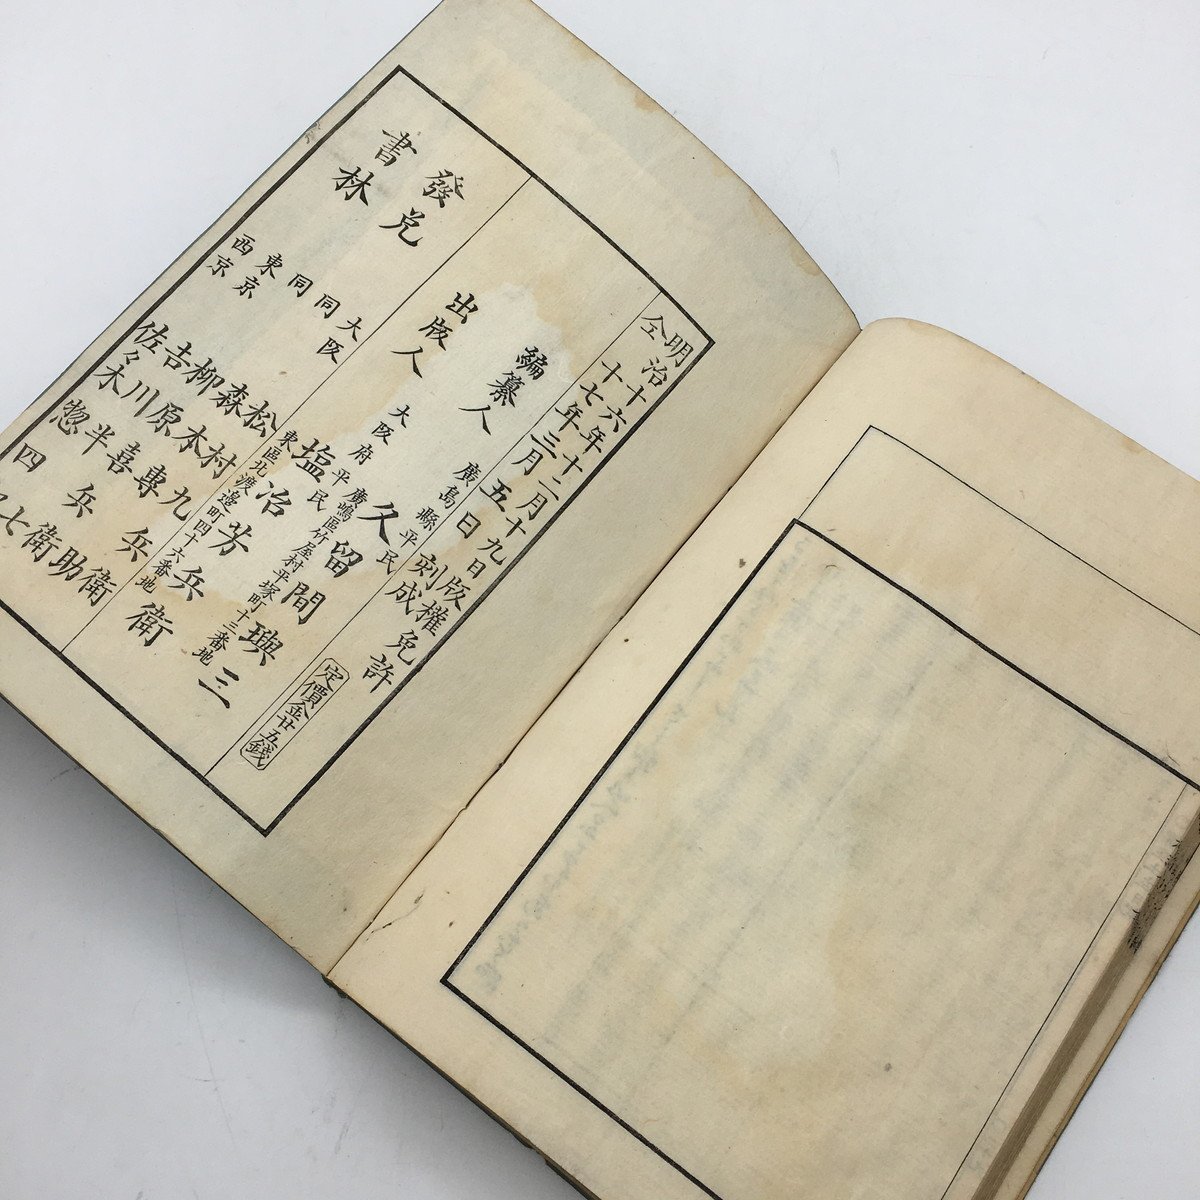 明治十六年十二月十九日版權免許
仝十七年三月五日刻成
定價金廿五錢
編纂人
廣島縣平民
久留間璵三
廣嶋區竹屋村平塚町十三番地
出版人
大阪府平民
塩冶芳兵衛
東區北渡邊町四十六番地
發兌
書林
大阪 松村九兵衛
同 森本專助
同 柳原喜兵衛
東京 吉川半七
西京 佐々木惣四